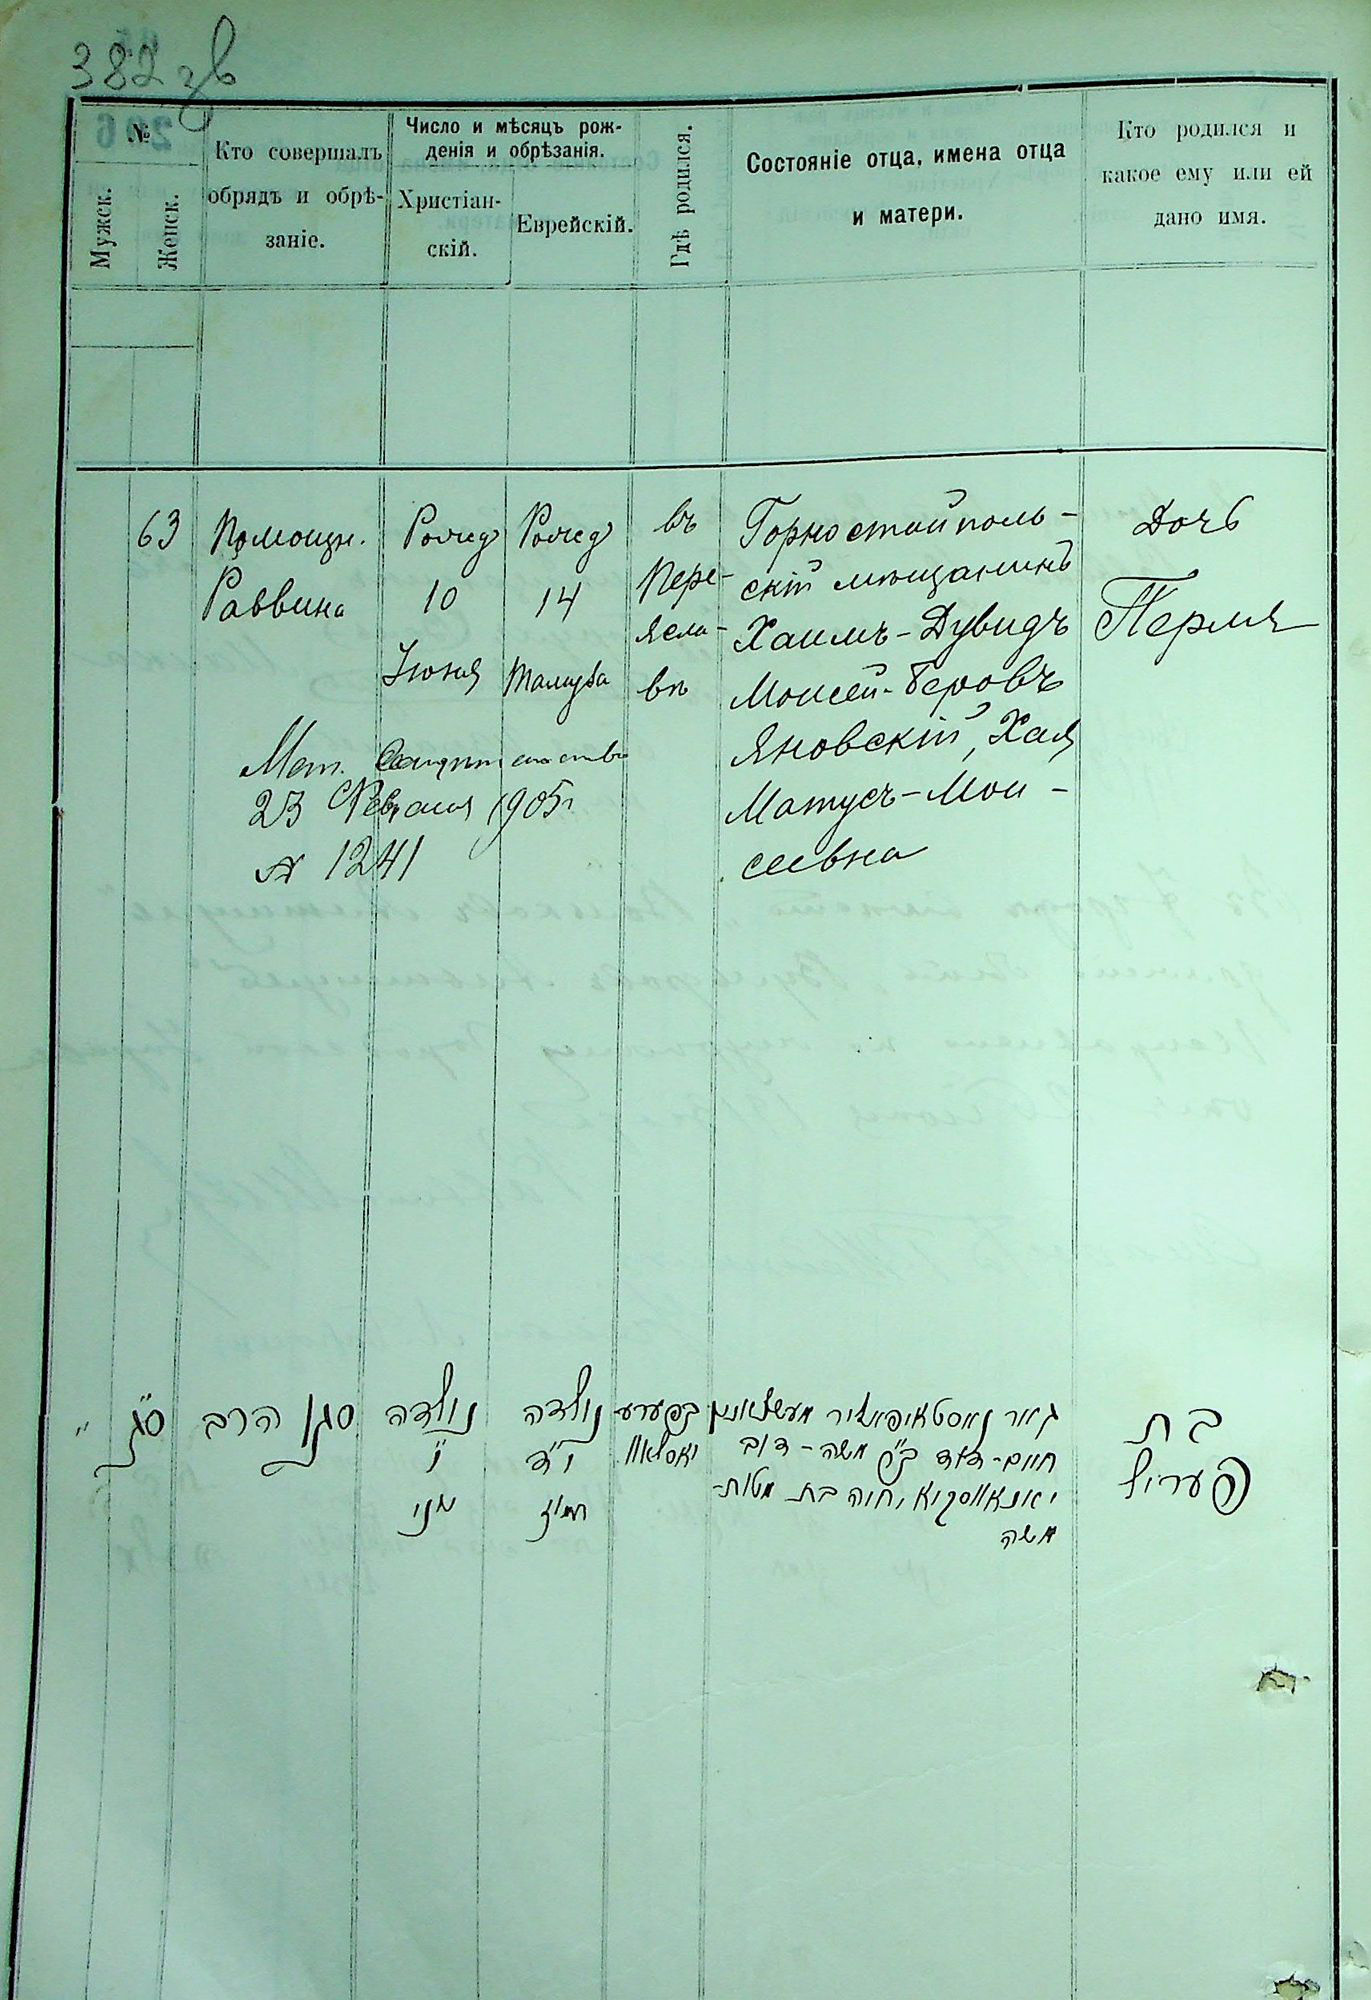 382 зв
№
Мужск.
Женск.
Кто совершалъ
обрядъ и обрѣ-
заніе.
Число и мѣсяцъ рож-
денія и обрѣзанія.
Христіан-
скій.
Еврейскій.
Гдѣ родился.
Состояніе отца, имена отца
и матери.
Кто родился и
какое ему или ей
дано имя.
63
Помощн.
Раввина
Рожд
10
Іюня
Рожд
14
Тамуза
въ
Пере-
ясла-
вѣ
Горностайполь-
скій мѣщанинъ
Хаимъ-Дувидъ
Моисей-Беровъ
Яновскій, Хая
Матусъ-Мои-
сеевна
Дочь
Перля
Мет. Свидѣтельство
23 Февраля 1905г
№ 1241
ס"ג
סגן הרב
נולדה
י'
יוני
נולדה
י"ד
תמוז
בפערע
יאסלאוו
חיים-דוד ב"ר משה-דוב
יאנאווסקי, חיה בת מטות-
משה
בת
פערל